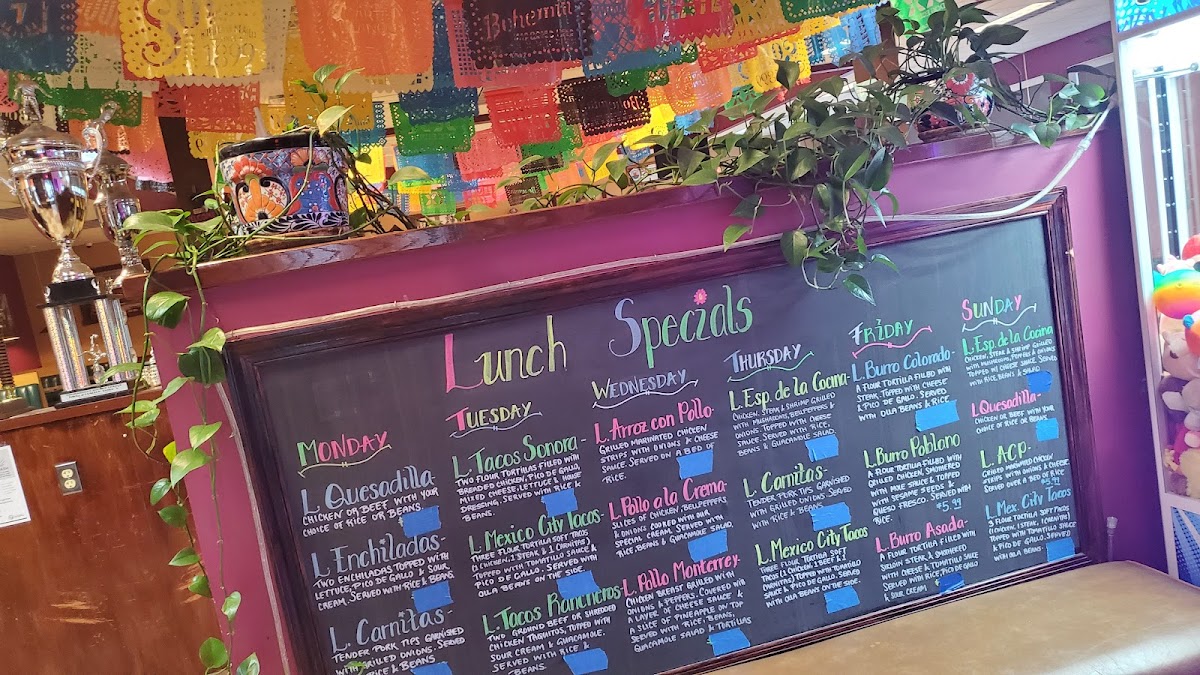 Bohemia
Lunch Specials
MONDAY
L. Quesadilla-
CHICKEN OR BEEF WITH YOUR
CHOICE OF RICE OR BEANS.
L. Enchiladas-
TWO ENCHILADAS TOPPED WITH
LETTUCE, PICO DE GALLO & SOUR
CREAM. SERVED WITH RICE & BEANS.
L. Carnitas-
TENDER PORK TIPS GARNISHED
WITH GRILLED ONIONS. SERVED
RICE & BEANS
TUESDAY
L. Tacos Sonora-
TWO FLOUR TORTILLAS FILLED WITH
BREADED CHICKEN, PICO DE GALLO,
MIXED CHEESE, LETTUCE & HOUSE
DRESSING. SERVED WITH RICE &
BEANS
L. Mexico City Tacos-
THREE FLOUR TORTILLA SOFT TACOS
(1 CHICKEN, 1 STEAK, & 1 CARNITAS)
TOPPED WITH TOMATILLO SAUCE &
PICO DE GALLO. SERVED WITH
OLLA BEANS ON THE SIDE.
L. Tacos Rancheros-
TWO GROUND BEEF OR SHREDDED
CHICKEN TAQUITOS, TOPPED WITH
SOUR CREAM & GUACAMOLE.
SERVED WITH RICE &
BEANS.
WEDNESDAY
L. Arroz con Pollo-
GRILLED MARINATED CHICKEN
STRIPS WITH ONIONS & CHEESE
SAUCE. SERVED ON A BED OF
RICE.
L. Pollo a la Crema-
SLICES OF CHICKEN, BELLPEPPERS
& ONIONS COOKED WITH OUR
SPECIAL CREAM. SERVED WITH
RICE BEANS & GUACAMOLE SALAD.
L. Pollo Monterrey-
CHICKEN BREAST GRILLED WITH
ONIONS & PEPPERS. COVERED WITH
A LAYER OF CHEESE SAUCE &
A SLICE OF PINEAPPLE ON TOP
SERVED WITH RICE, BEANS,
GUACAMOLE SALAD & TORTILLAS
THURSDAY
L. Esp. de la Cocina-
CHICKEN, STEAK & SHRIMP GRILLED
WITH MUSHROOMS, BELLPEPPERS &
ONIONS. TOPPED WITH CHEESE
SAUCE. SERVED WITH RICE,
BEANS & GUACAMOLE SALAD.
L. Carnitas-
TENDER PORK TIPS GARNISHED
WITH GRILLED ONIONS. SERVED
WITH RICE & BEANS
L. Mexico City Tacos
THREE FLOUR TORTILLA SOFT
TACOS (1 CHICKEN 1 BEEF & 1
CARNITAS) TOPPED WITH TOMATILLO
SAUCE & PICO DE GALLO. SERVED
WITH OLLA BEANS ON THE SIDE.
FRIDAY
L. Burro Colorado-
A FLOUR TORTILLA FILLED WITH
STEAK. TOPPED WITH CHEESE
& PICO DE GALLO. SERVED WITH
OLLA BEANS & RICE.
L. Burro Poblano
A FLOUR TORTILLA FILLED WITH
GRILLED CHICKEN, SMOTHERED
WITH MOLE SAUCE & TOPPED
WITH SESAME SEEDS &
QUESO FRESCO. SERVED WITH
RICE. $5.99
L. Burro Asada-
A FLOUR TORTILLA, FILLED WITH
SIRLOIN STEAK & SMOTHERED
WITH CHEESE & TOMATILLO SAUCE
SERVED WITH RICE, PICO DE GALLO
& SOUR CREAM
SUNDAY
L. Esp. de la Cocina
CHICKEN, STEAK & SHRIMP GRILLED
WITH MUSHROOMS, PEPPERS & ONIONS
TOPPED W/ CHEESE SAUCE. SERVED
WITH RICE, BEANS & SALAD
L. Quesadilla-
CHICKEN OR BEEF WITH YOUR
CHOICE OF RICE OR BEANS.
L. ACP-
GRILLED MARINATED CHICKEN
STRIPS WITH ONIONS & CHEESE
SERVED OVER A BED OF RICE
$5.99
L. Mex. City Tacos
3 FLOUR TORTILLA SOFT TACOS
(1 CHICKEN, 1 STEAK, 1 CARNITAS)
TOPPED W/ TOMATILLO SAUCE
& PICO DE GALLO. SERVED
WITH OLLA BEANS